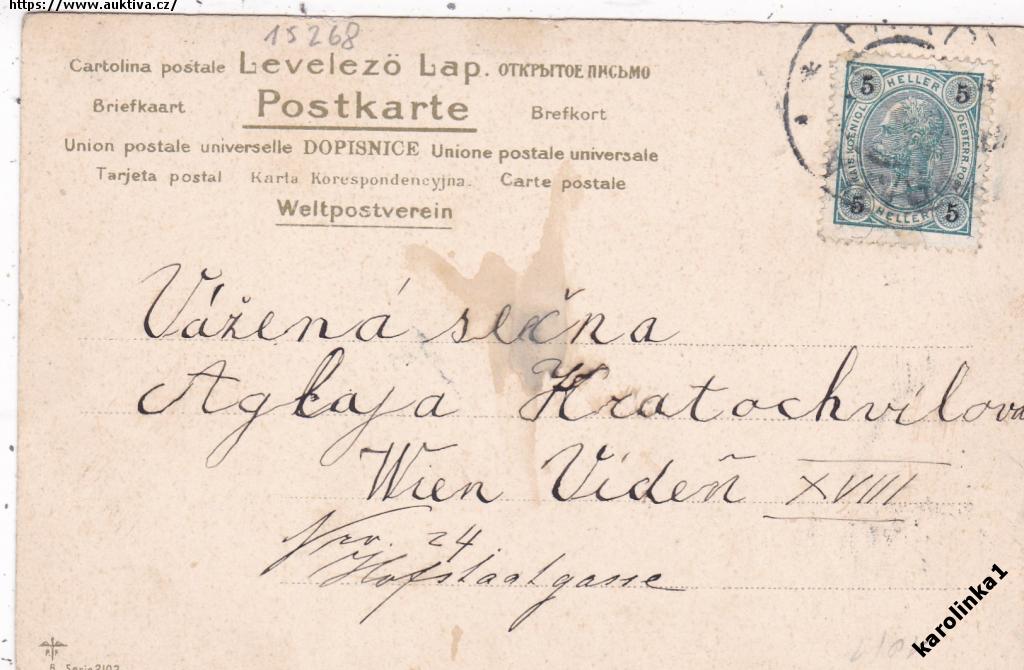 https://www.auktiva.cz/
15268
Cartolina postale Levelező Lap. ОТКРЫТОЕ ПИСЬМО
Briefkaart Postkarte Brefkort
Union postale universelle DOPISNICE Unione postale universale
Tarjeta postal Karta Korespondencyjna. Carte postale
Weltpostverein
5 HELLER 5
5 HELLER 5
Vážená slečna
Aglaja Kratochvílova
Wien Vídeň XVIII
Nro. 24
Hofstaatgasse
karolinka1
P. F.
Serie 2102